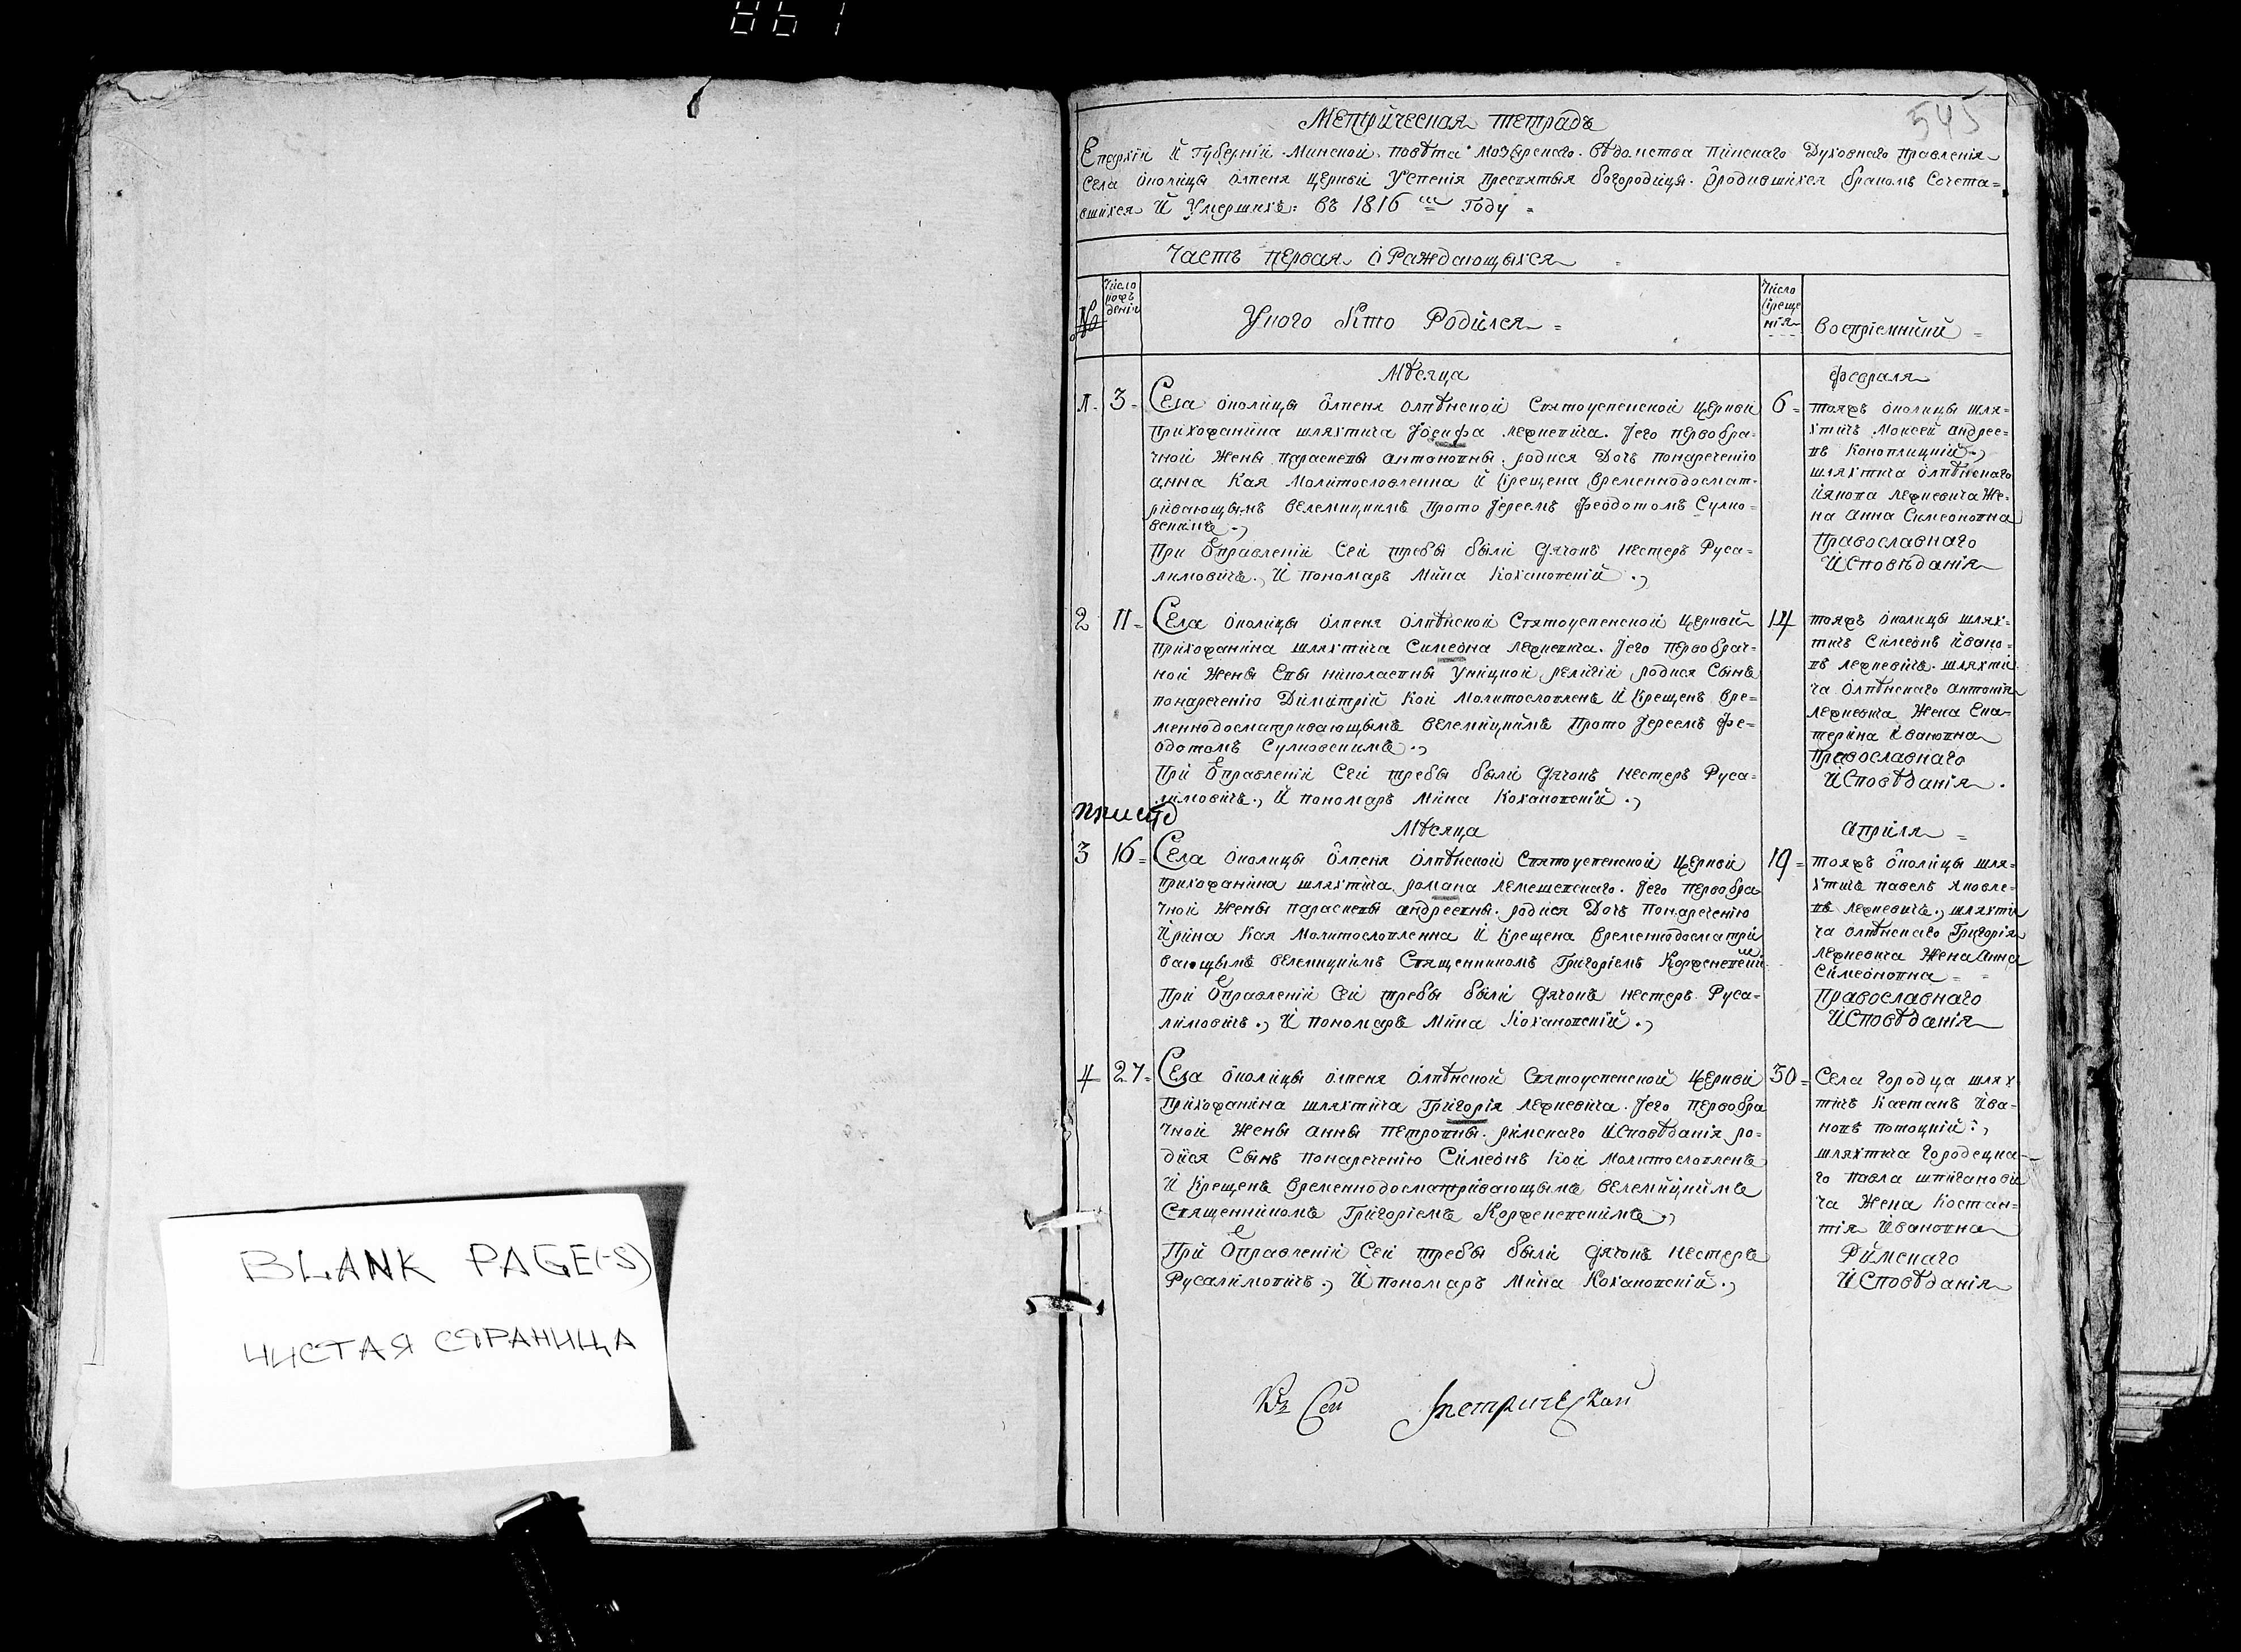 861
BLANK PAGE(-S)
ЧИСТАЯ СТРАНИЦА
545
Метрическая тетрадъ
Епархіи И Губерніи Минской повѣта Мозырскаго вѣдомства пинскаго Духовнаго правленія
Села околицы олпеня церкви Успенія пресвятыя богородицы. ородившихся бракомъ Сочета=
вшихся И Умершихъ: въ 1816 м Году
Часть первая о Раждающыхся
№
Число рожденія
Укого Кто Родился
Число Крещенія
воспріемники
Мѣсяца
февраля
1. 3
Села околицы олпеня олпѣнской Святоуспенской церкви
Прихожанина шляхтича Іосифа лехневича. Іего первобра=
чной Жены параскевы антоновны. родися Дочь понаречению
анна Кая Молитвословленна И Крещена временнодосмат=
ривающымъ велемицкимъ прото Іереемъ феодотомъ Сулко=
вскимъ.,
При Отправленіи Сей требы были дячокъ нестеръ Руса=
лимовичъ., И пономаръ Мина Кохановскій.,
6
тояжъ околицы шля=
хтичъ Моисей андрее=
въ Коноплицкій.,
шляхтича олпѣнскаго
Іякова лехневича Же=
на анна Симеоновна
Православнаго
ИСповѣданія
2 11
Села околицы олпеня олпѣнской Святоуспенской церкви
прихожанина шляхтича Симеона лехневича. Іего первобрач=
ной Жены Евы николаевны Уніцкой религіи родися Сынъ
понаречению Димитрій Кои Молитвословленъ И Крещенъ вре=
меннодосматривающымъ велемицкимъ прото Іереемъ фе=
одотомъ Сулковскимъ.,
При Отправленіи Сей требы были дячокъ нестеръ Руса=
лимовичъ., И пономаръ Мина Кохановскій.,
14
тояжъ околицы шлях=
тичъ Симеонъ ивано=
въ лехневичъ. шляхти
ча олпѣнскаго антонія
лехневича Жена Ека=
терина ивановна
Православнаго
ИСповѣданія.
Мѣсяца
априля
3 16
Села околицы олпеня олпѣнской Святоуспенской церкви
прихожанина шляхтича романа лемешевскаго. Іего первобра
чной Жены параскевы андреевны. родися Дочь понаречению
Ирина Кая Молитвословленна И Крещена временнодосматри
вающымъ велемицкимъ Священникомъ Григоріемъ Корженевски
При Отправленіи Сей требы были дячокъ нестеръ Руса=
лимовичъ., И пономаръ Мина Кохановскій.,
19
тояжъ околицы шля=
хтичъ павелъ яковле=
въ лехневичъ., шляхти
ча олпѣнскаго Григорія
лехневича Жена анна
Симеоновна
православнаго
ИСповѣданія
4 27
Села околицы олпеня олпѣнской Святоуспенской церкви
Прихожанина шляхтича Григорія лехневича. Іего первобра
чной Жены анны петровны. римскаго ИСповѣданія ро=
дися Сынъ понаречению Симеонъ Кои Молитвословленъ
И Крещенъ временнодосматривающымъ велемицкимъ
Священникомъ Григоріемъ Корженевскимъ.,
При Отправленіи Сей требы были дячокъ нестеръ
Русалимовичъ., И пономаръ Мина Кохановскій.,
30
Села городца шлях
тичъ Каетанъ Ива=
новъ потоцкій.,
шляхтича городецка=
го павла шпигановы
ча Жена Костан=
тія Ивановна
Римскаго
ИСповѣданія
Къ Сей Метрической